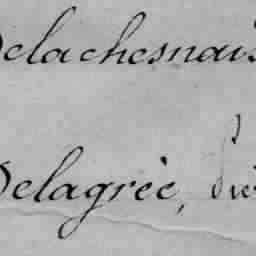 Delachesnais
Delagrèe,